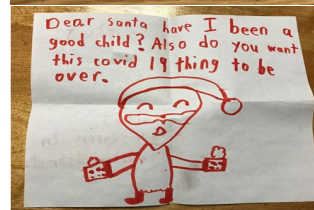 Dear santa have I been a
good child? Also do you want
this covid 19 thing to be
over.